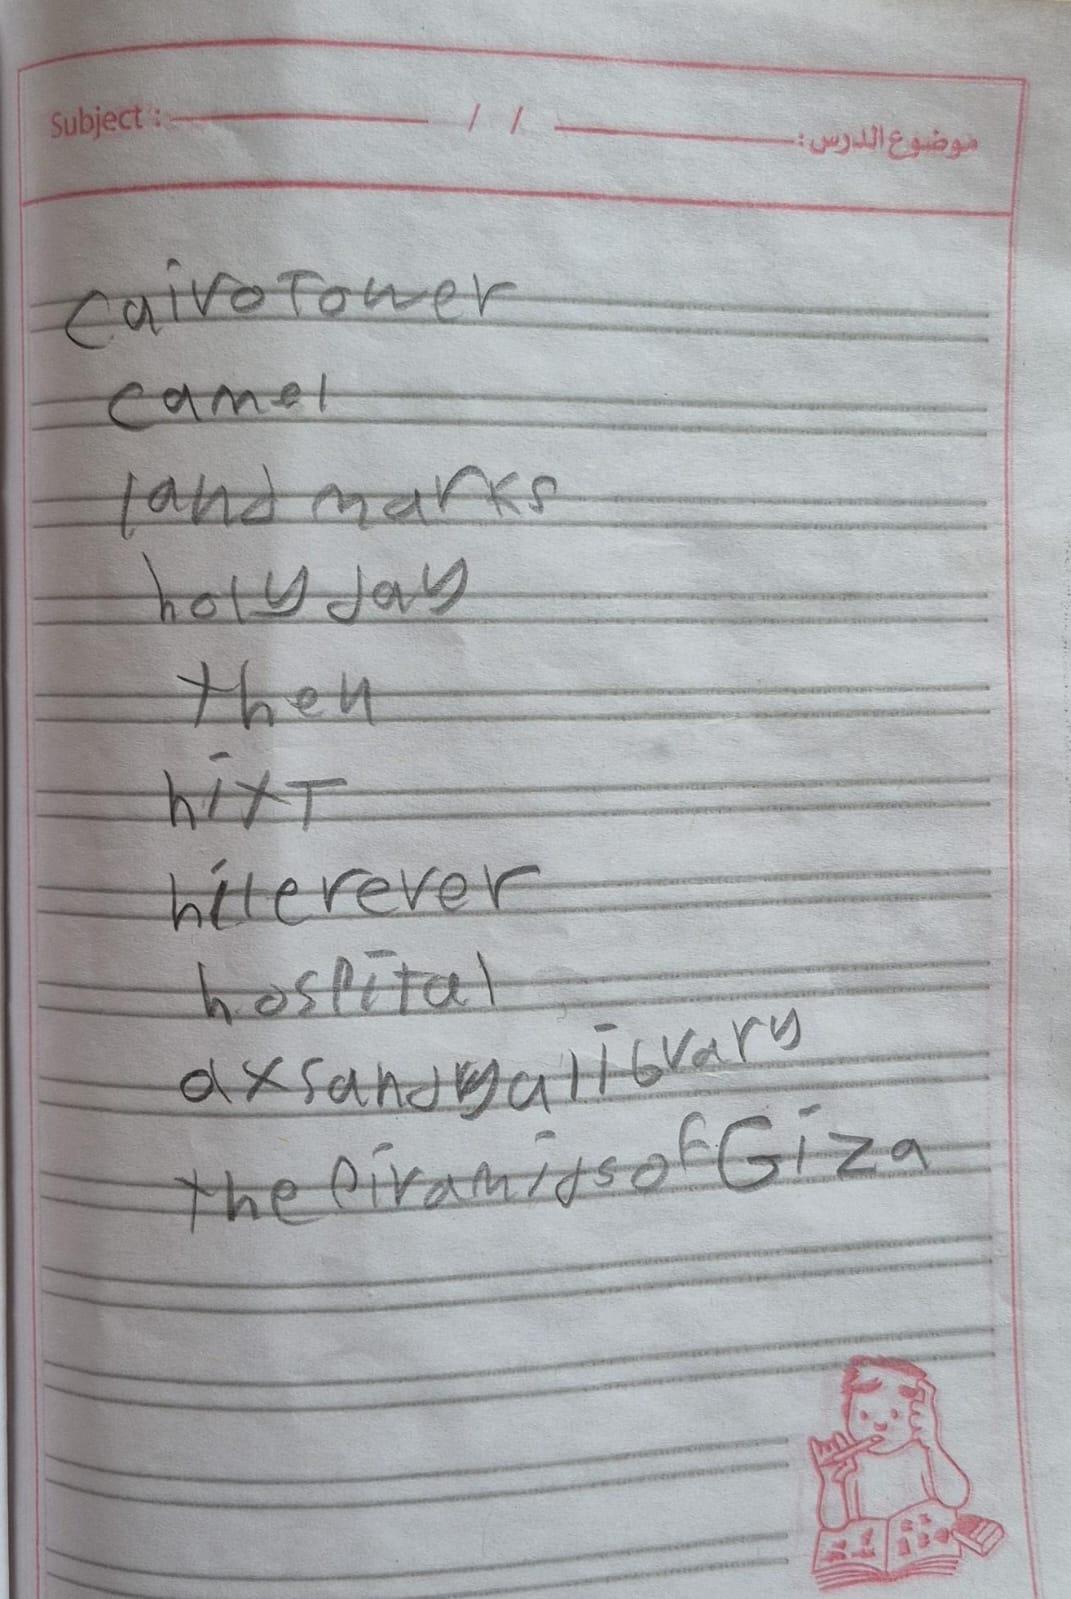 Subject : / / موضوع الدرس :
Cairo Tower
camel
land marks
holy day
then
hixT
hilerever
hospital
axsandya library
the Piramids of Giza